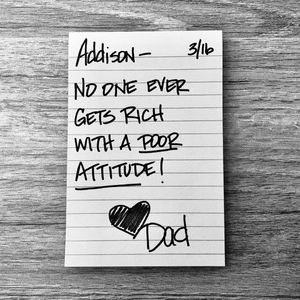 Addison— 3/16
NO ONE EVER
GETS RICH
WITH A POOR
ATTITUDE!
Dad